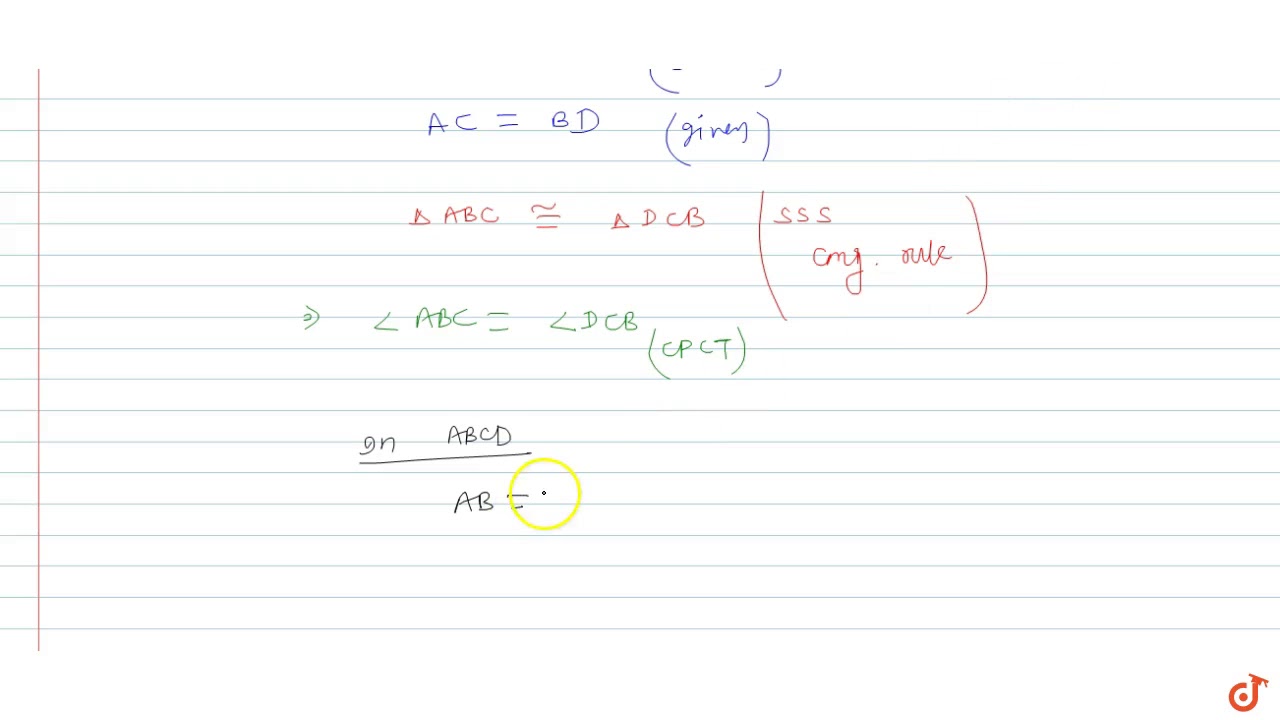 AC = BD (given)
Δ ABC ≅ Δ DCB (SSS
cong. rule)
⇒ ∠ ABC = ∠ DCB
(CPCT)
In ABCD
AB =